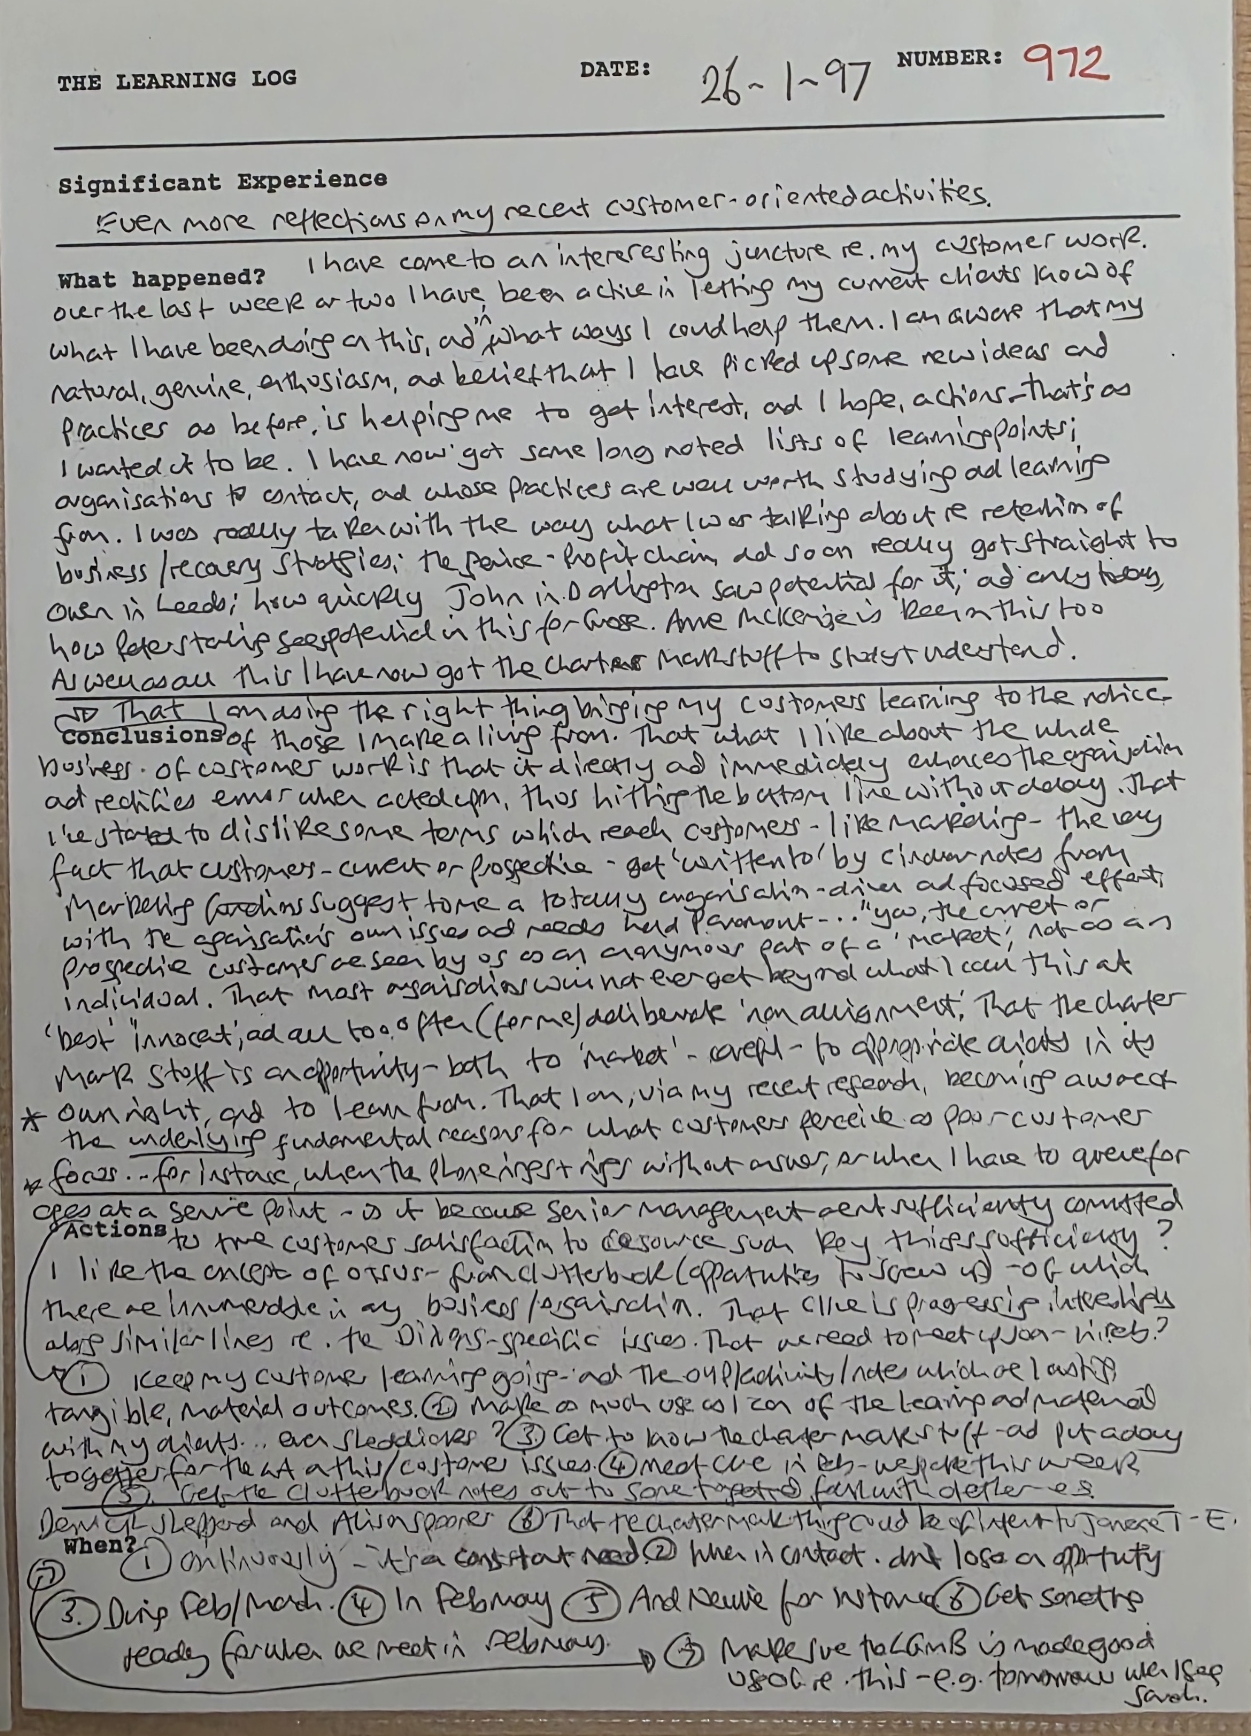 THE LEARNING LOG DATE: 26-1-97 NUMBER: 972
Significant Experience
Even more reflections on my recent customer-oriented activities.
What happened? I have come to an interesting juncture re. my customer work.
over the last week or two I have been active in letting my current clients know of
what I have been doing on this, and in what ways I could help them. I am aware that my
natural, genuine, enthusiasm, and belief that I have picked up some new ideas and
practices as before, is helping me to get interest, and I hope, actions - that's as
I wanted it to be. I have now got some long noted lists of learning points;
organisations to contact, and whose practices are well worth studying and learning
from. I was really taken with the way what I was talking about re retention of
business/recovery strategies; the service-profit chain, and so on really got straight to
Owen in Leeds; how quickly John in Darlington saw potential for it; and only today,
how Peter sees potential in this for . Anne McKenzie is keen on this too
As well as all this I have now got the Charter Mark stuff to study + understand.
That I am doing the right thing bringing my customers learning to the notice
Conclusions of those I make a living from. That what I like about the whole
business of customer work is that it directly and immediately enhances the organisation
and rectifies error when acted upon, thus hitting the bottom line without delay. That
I've started to dislike some terms which reach customers - like marketing - the very
fact that customers - current or prospective - get 'written to' by circular notes from
'Marketing functions suggest to me a totally organisation-driven and focused effort,
with the organisation's own issues and needs held paramount... "you, the current or
prospective customer are seen by us as an anonymous part of a 'market', not as an
individual. That most organisations will not ever get beyond what I call this at
'best' 'innocent', and all too often (for me) deliberate 'non alignment'. That the charter
Mark stuff is an opportunity - both to 'market' - careful - to appropriate clients in its
* own right, and to learn from. That I am, via my recent research, becoming aware of
the underlying fundamental reasons for what customers perceive as poor customer
* focus... for instance, when the phone rings + rings without answer, or when I have to queue for
ages at a service point - is it because senior management aren't sufficiently committed
Actions to true customer satisfaction to resource such key things sufficiently?
I like the concept of OTSUS - from Clutterbuck (opportunities to screw up) - of which
there are innumerable in any business/organisation. That Clive is progressing
along similar lines re. the Dixons-specific issues. That we need to meet up soon -
① Keep my customer learning going - and the output/activity/notes which are lasting,
tangible, material outcomes. ② Make as much use as I can of the learning and material
with my clients... even ? ③ Get to know the charter mark stuff - and put a day
together for the on this/customer issues. ④ Meet Clive in Feb - we spoke this week
⑤ Get the Clutterbuck notes out to some targeted
Sheppard and Alison Spooner ⑥ That the charter mark thing could be of interest to T-E.
When? ① Continuously - it's a constant need ② When in contact. don't lose an opportunity
⑦ ③ During Feb/March. ④ In February ⑤ And for instance ⑥ Get something
ready for when we meet in February. ⑦ Make sure LGMB is made good
use of re. this - e.g. tomorrow when I see
Sarah.